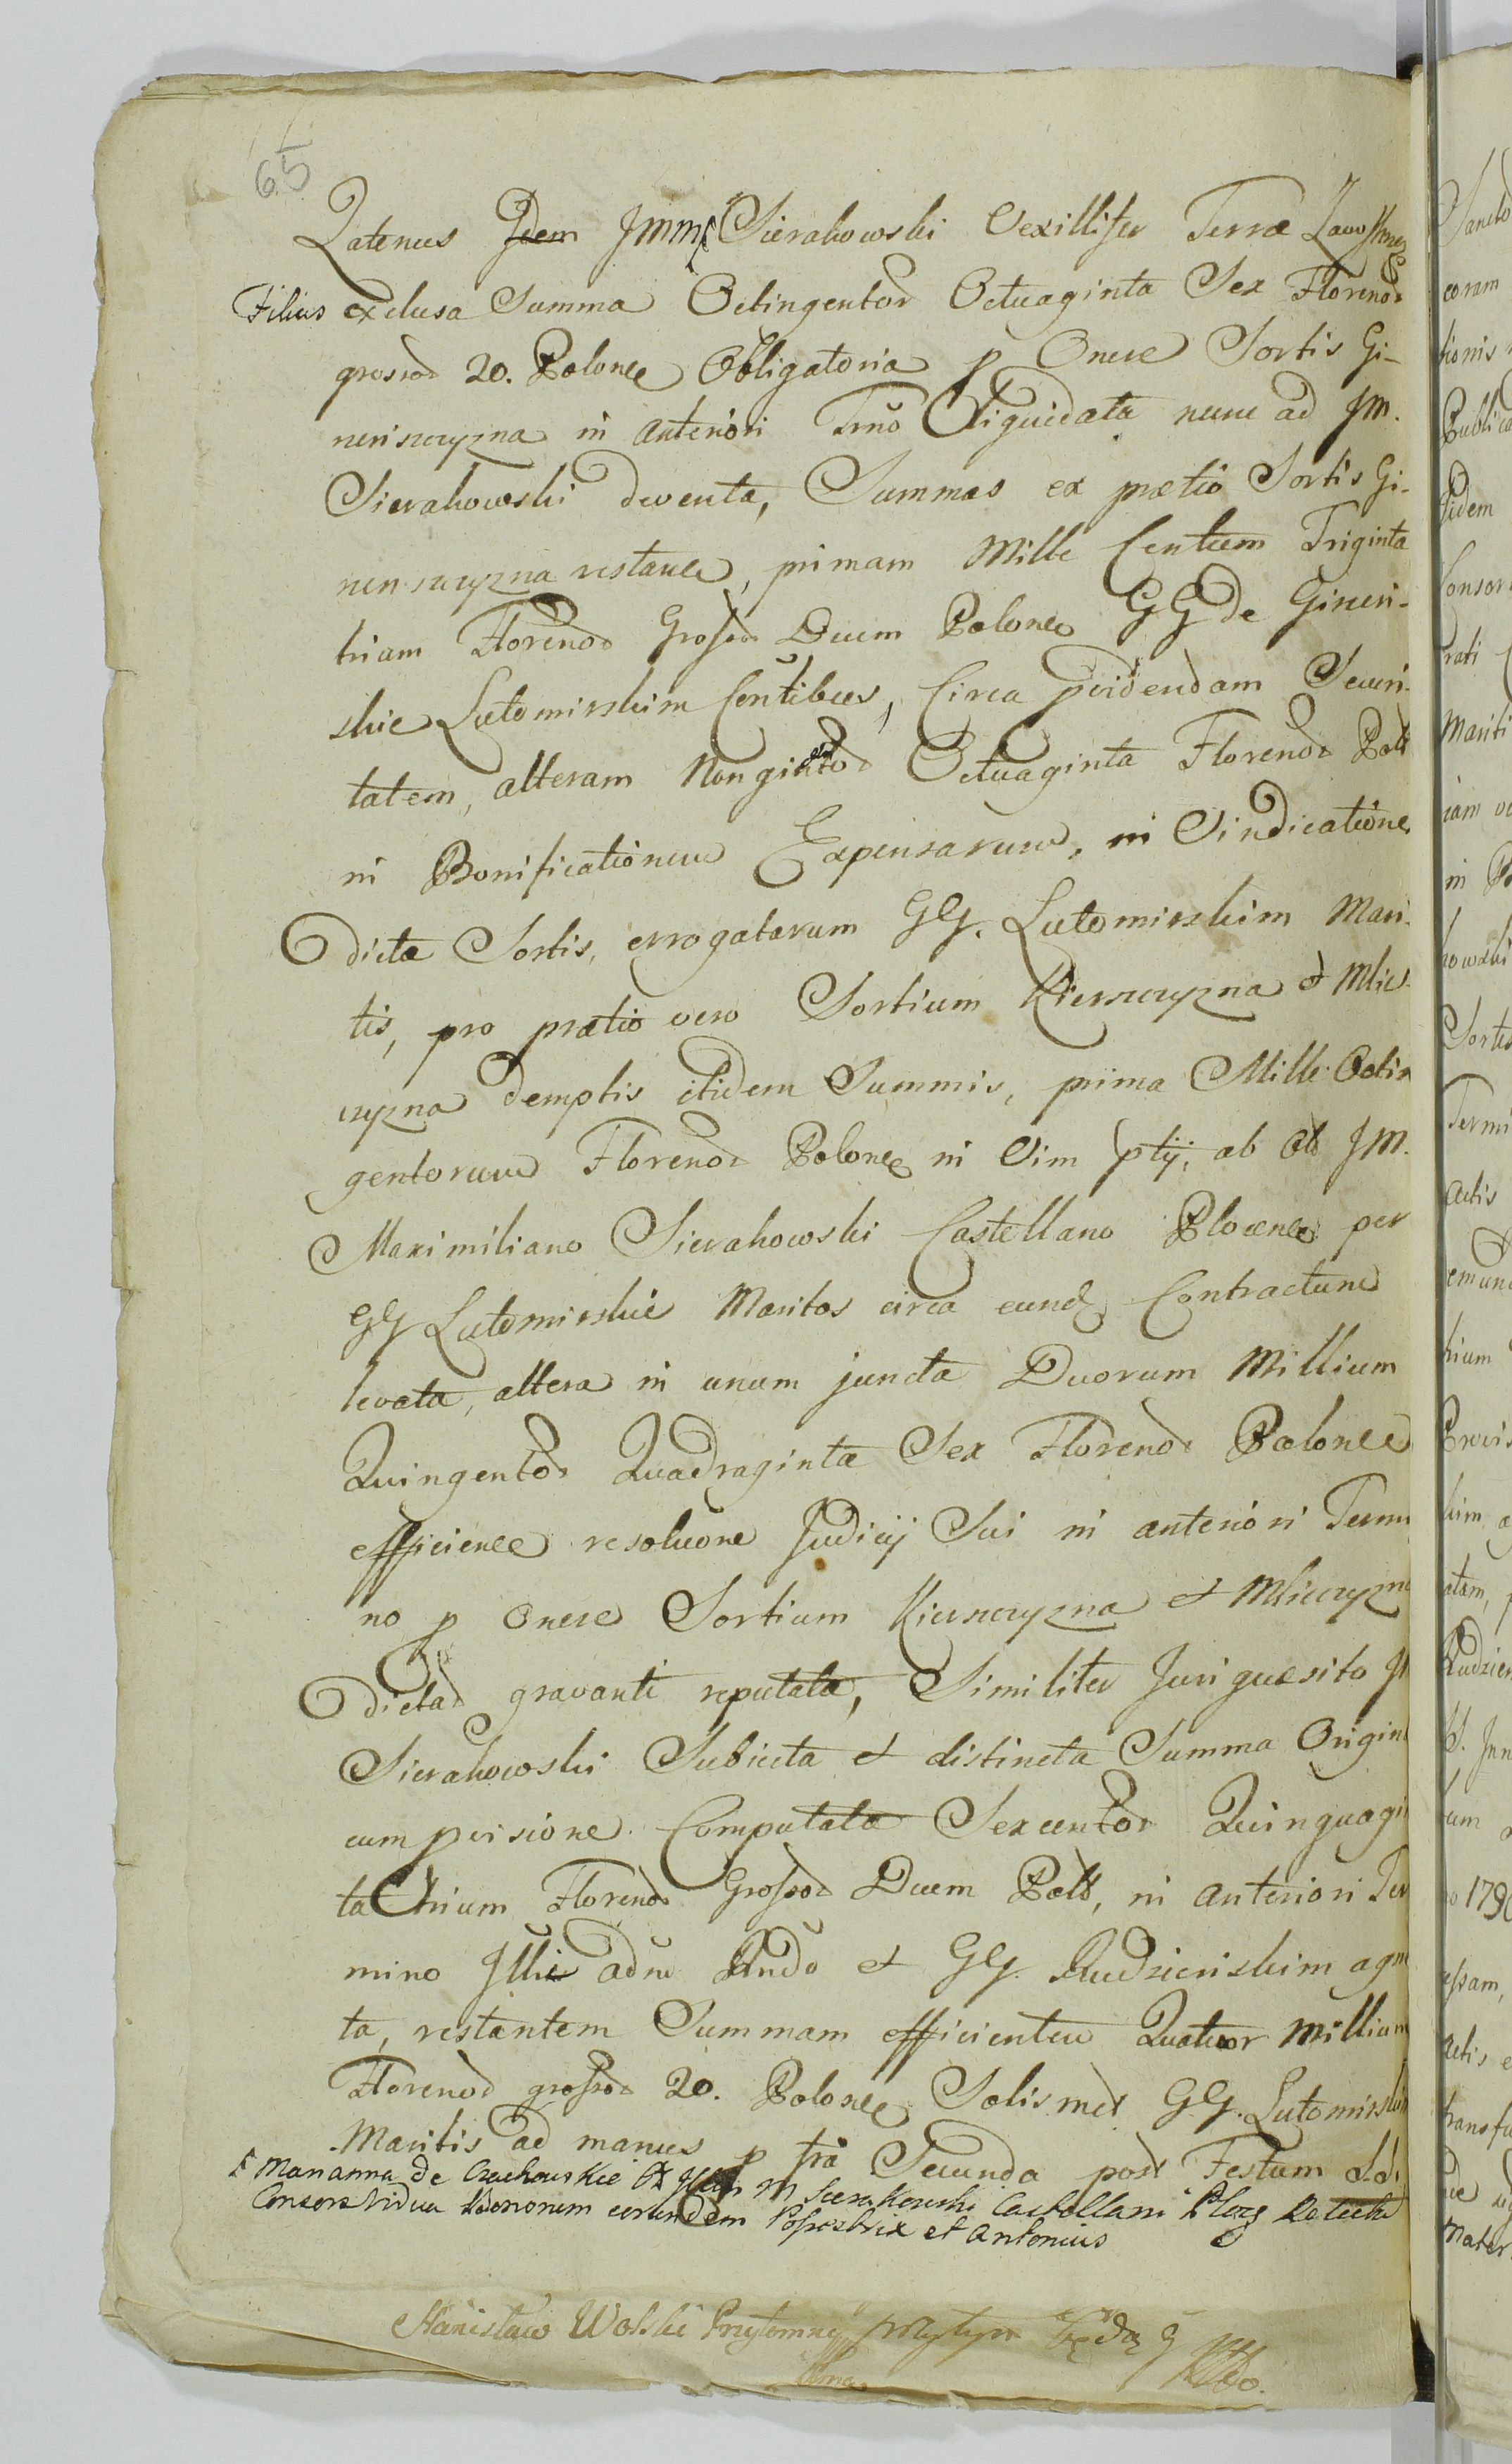 65
Qatenus Idem JMM Sierakowski Vexillifer Terræ Zawskrzen
Filius exclusa Summa Octingentor Octuaginta Sex Florenor
grossor 20. Polonce Obligatoria p Onere Sortis Gi-
nensczyzna in anteriori Trno Liquidata nunc ad JM.
Sierakowski deventa, Summas ex prætio Sortis Gi-
nensczyzna restance, primam Mille Centum Triginta
trium Florenor Grossor Decem Polonce GG de Ginen-
skie Lutomirskim Contibus, Circa pvidendam Securi-
tatem, alteram Nongintor Octuaginta Florenor Pol
in Bonificationem Expensarum, in Vindicatione
dictæ Sortis, errogatarum GG. Lutomirskim Mari-
tis, pro prætio vero Sortium Kiersczyzna et Mlic-
czyzna demptis itidem Summis, prima Mille Octin
gentorum Florenor Polonce in Vim ptij, ab Ol JM.
Maximiliano Sierakowski Castellano Plocence per
GG Lutomirskie Maritos circa eundq Contractum
levata, altera in unum juncta Duorum Millium
Quingentor Quadraginta Sex Florenor Polonce
efficience resolucone Judicij Sui in anteriori Termi
no p Onere Sortium Kiersczyzna et Mliczyzna
dictar gravanti reputata, Similiter Juri quæsito JM
Sierakowski Subiecta et distincta Summa Origin
cum pvisione Computata Sexcentor Quinquagin
ta trium Florenor Grossor Decem Pol, in anteriori Ter
mino Illi adm Rndo et GG. Rudzienskim agni
ta, restantem Summam efficientem Quatuor Millium
Florenor grossor 20. Polonce Solismet GG. Lutomirskim
Maritis ad manus p fra Secunda post Festum
Marianna de Czachowskie M Sierakowski Castellani Ploce Relicta
Consors Vidua Bonorum eorundem Possestrix et Antonius
Stanisław Wolski Przytomny przytym będąc